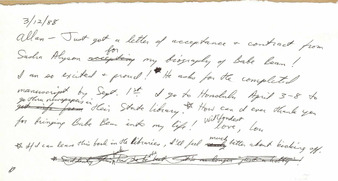 3/12/88
Allan – Just got a letter of acceptance & contract from
Sasha Alyson for my biography of Babe Bean!
I am so excited & proud! * He asks for the completed
manuscript by Sept. 1st. I go to Honolulu April 3-8 to
go thru newspapers in their State Library. * How can I ever thank you
for bringing Babe Bean into my life! With fondest
love, Lou
* If I can leave this book in the libraries, I'll feel much better about kicking off.